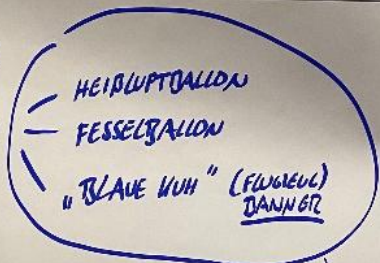 HEIßLUFTBALLON
FESSELBALLON
„BLAUE KUH" (FLUGZEUG)
BANNER